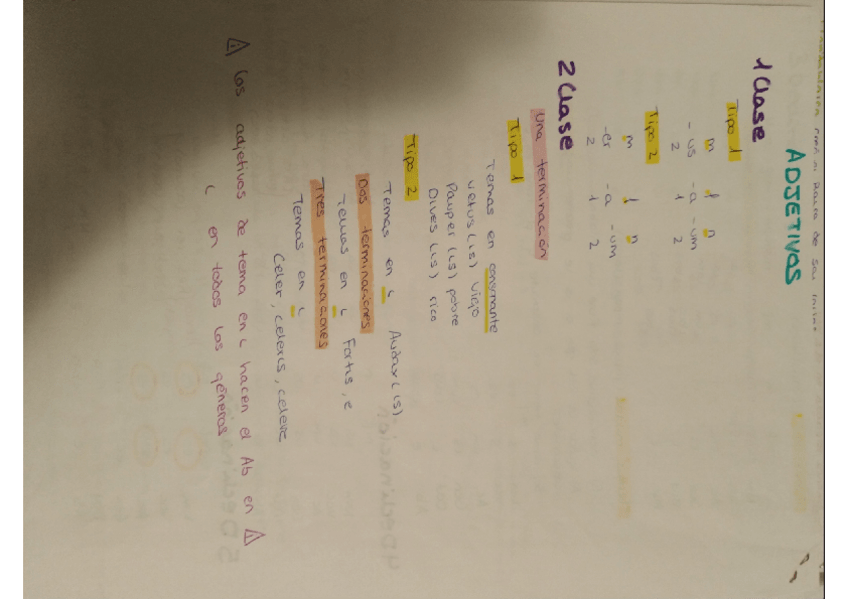 ADJETIVOS
1 Clase
Tipo 1
m f n
-us -a -um
2 1 2
Tipo 2
m f n
-er -a -um
2 1 2
2 Clase
Una terminación
Tipo 1
Temas en consonante
Vetus (is) viejo
Pauper (is) pobre
Dives (is) rico
Tipo 2
Temas en i Audax (is)
Dos terminaciones
Temas en i Fortis, e
Tres terminaciones
Temas en i
Celer, celeris, celere
⚠ Los adjetivos de tema en i hacen el Ab en ⚠
i en todos los géneros